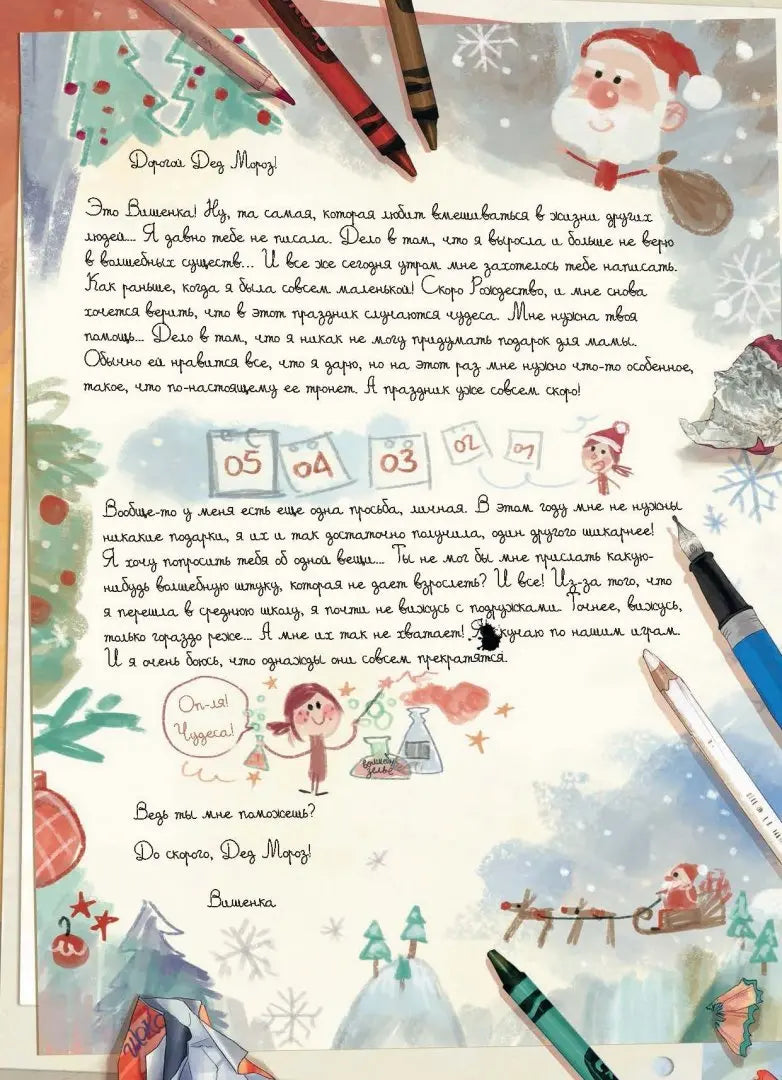 Дорогой Дед Мороз!
Это Вишенка! Ну, та самая, которая любит вмешиваться в жизни других
людей... Я давно тебе не писала. Дело в том, что я выросла и больше не верю
в волшебных существ... И все же сегодня утром мне захотелось тебе написать.
Как раньше, когда я была совсем маленькой! Скоро Рождество, и мне снова
хочется верить, что в этот праздник случаются чудеса. Мне нужна твоя
помощь... Дело в том, что я никак не могу придумать подарок для мамы.
Обычно ей нравится все, что я дарю, но на этот раз мне нужно что-то особенное,
такое, что по-настоящему ее тронет. А праздник уже совсем скоро!
05 04 03 02 01
Вообще-то у меня есть еще одна просьба, личная. В этом году мне не нужны
никакие подарки, я их и так достаточно получила, один другого шикарнее!
Я хочу попросить тебя об одной вещи... Ты не мог бы мне прислать какую-
нибудь волшебную штуку, которая не дает взрослеть? И все! Из-за того, что
я перешла в среднюю школу, я почти не вижусь с подружками. Точнее, вижусь,
только гораздо реже... А мне их так не хватает! Я скучаю по нашим играм.
И я очень боюсь, что однажды они совсем прекратятся.
Оп-ля!
Чудеса!
волшебное
зелье
Ведь ты мне поможешь?
До скорого, Дед Мороз!
Вишенка